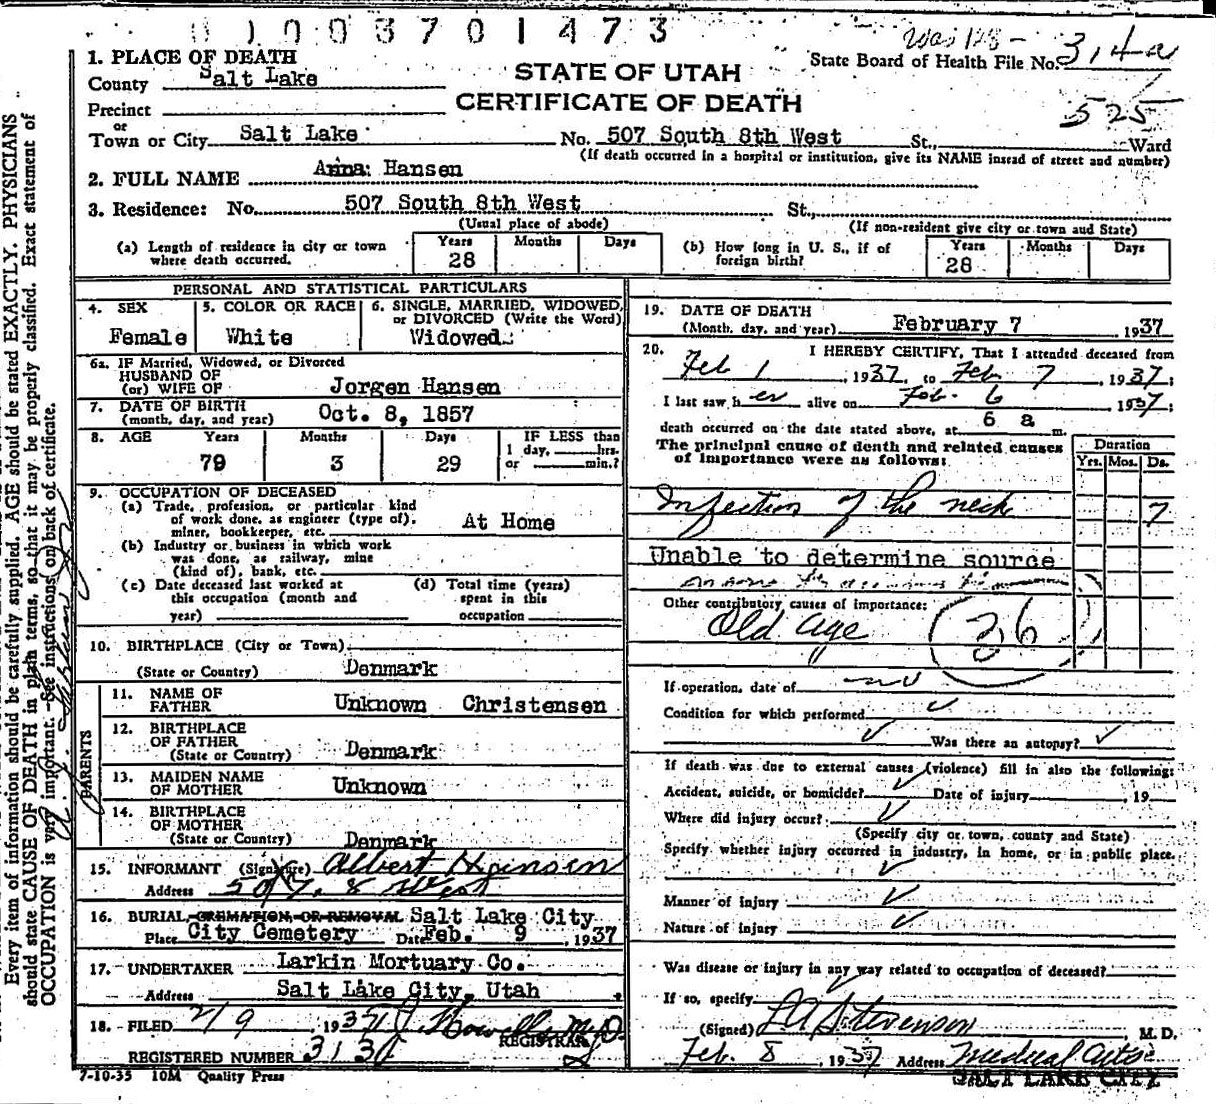 0 1 0 0 3 7 0 1 4 7 3
Was 128 -
1. PLACE OF DEATH
State Board of Health File No. 314a
County Salt Lake
STATE OF UTAH
CERTIFICATE OF DEATH
525
Precinct
or
Town or City Salt Lake No. 507 South 8th West St., Ward
(If death occurred in a hospital or institution, give its NAME instead of street and number)
2. FULL NAME Anna Hansen
3. Residence: No. 507 South 8th West St.,
(Usual place of abode) (If non-resident give city or town and State)
(a) Length of residence in city or town where death occurred. Years 28 Months Days
(b) How long in U. S., if of foreign birth? Years 28 Months Days
PERSONAL AND STATISTICAL PARTICULARS
4. SEX Female
5. COLOR OR RACE White
6. SINGLE, MARRIED, WIDOWED, or DIVORCED (Write the Word) Widowed
6a. IF Married, Widowed, or Divorced
HUSBAND OF
(or) WIFE OF Jorgen Hansen
7. DATE OF BIRTH
(month, day, and year) Oct. 8, 1857
8. AGE Years 79 Months 3 Days 29
IF LESS than
1 day, hrs.
or min.?
9. OCCUPATION OF DECEASED
(a) Trade, profession, or particular kind
of work done, as engineer (type of),
miner, bookkeeper, etc. At Home
(b) Industry or business in which work
was done, as railway, mine
(kind of), bank, etc.
(c) Date deceased last worked at
this occupation (month and
year)
(d) Total time (years)
spent in this
occupation
10. BIRTHPLACE (City or Town)
(State or Country) Denmark
PARENTS
11. NAME OF
FATHER Unknown Christensen
12. BIRTHPLACE
OF FATHER
(State or Country) Denmark
13. MAIDEN NAME
OF MOTHER Unknown
14. BIRTHPLACE
OF MOTHER
(State or Country) Denmark
15. INFORMANT (Signature) Albert Hansen
Address 507 S. 8 West
16. BURIAL, CREMATION, OR REMOVAL Salt Lake City
Place City Cemetery Date Feb. 9, 1937
17. UNDERTAKER Larkin Mortuary Co.
Address Salt Lake City, Utah
18. FILED 2/9, 1937 Howells M.D.
REGISTRAR
REGISTERED NUMBER 313
7-10-35 10M Quality Press
19. DATE OF DEATH
(Month, day, and year) February 7 1937
20. I HEREBY CERTIFY, That I attended deceased from
Feb 1, 1937, to Feb 7, 1937;
I last saw her alive on Feb. 6, 1937;
death occurred on the date stated above, at 6 a m.
The principal cause of death and related causes
of importance were as follows:
Duration
Yrs. Mos. Ds.
Infection of the neck 7
Unable to determine source
Other contributory causes of importance:
Old age
36
If operation, date of no
Condition for which performed
Was there an autopsy?
If death was due to external causes (violence) fill in also the following:
Accident, suicide, or homicide? Date of injury, 19
Where did injury occur?
(Specify city or town, county and State)
Specify whether injury occurred in industry, in home, or in public place.
Manner of injury
Nature of injury
Was disease or injury in any way related to occupation of deceased?
If so, specify
(Signed) Stevenson M. D.
Feb. 8, 1937 Address Medical Arts
SALT LAKE CITY
Every item of information should be carefully supplied. AGE should be stated EXACTLY. PHYSICIANS
should state CAUSE OF DEATH in plain terms, so that it may be properly classified. Exact statement of
OCCUPATION is very important. See instructions on back of certificate.